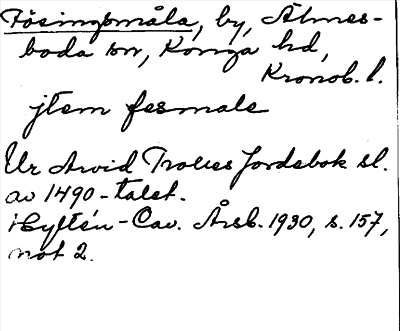 Fösingsmåla, by, Älmes-
boda sn, Konga hd,
Kronob. l.
jtem fesmale
Ur Arvid Trolles Jordebok sl.
av 1490-talet.
Hyltén-Cav. Årsb. 1930, s. 157,
not 2.